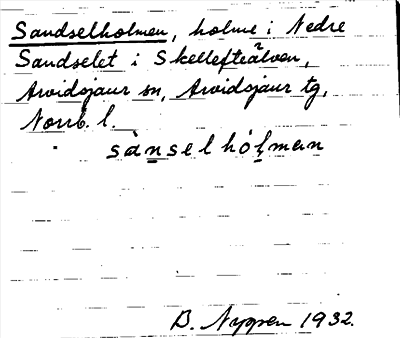 Sandselholmen, holme i Nedre
Sandselet i Skellefteälven,
Arvidsjaur sn, Arvidsjaur tg,
Norrb. l.
sànselhólmen
B. Nyppen 1932.